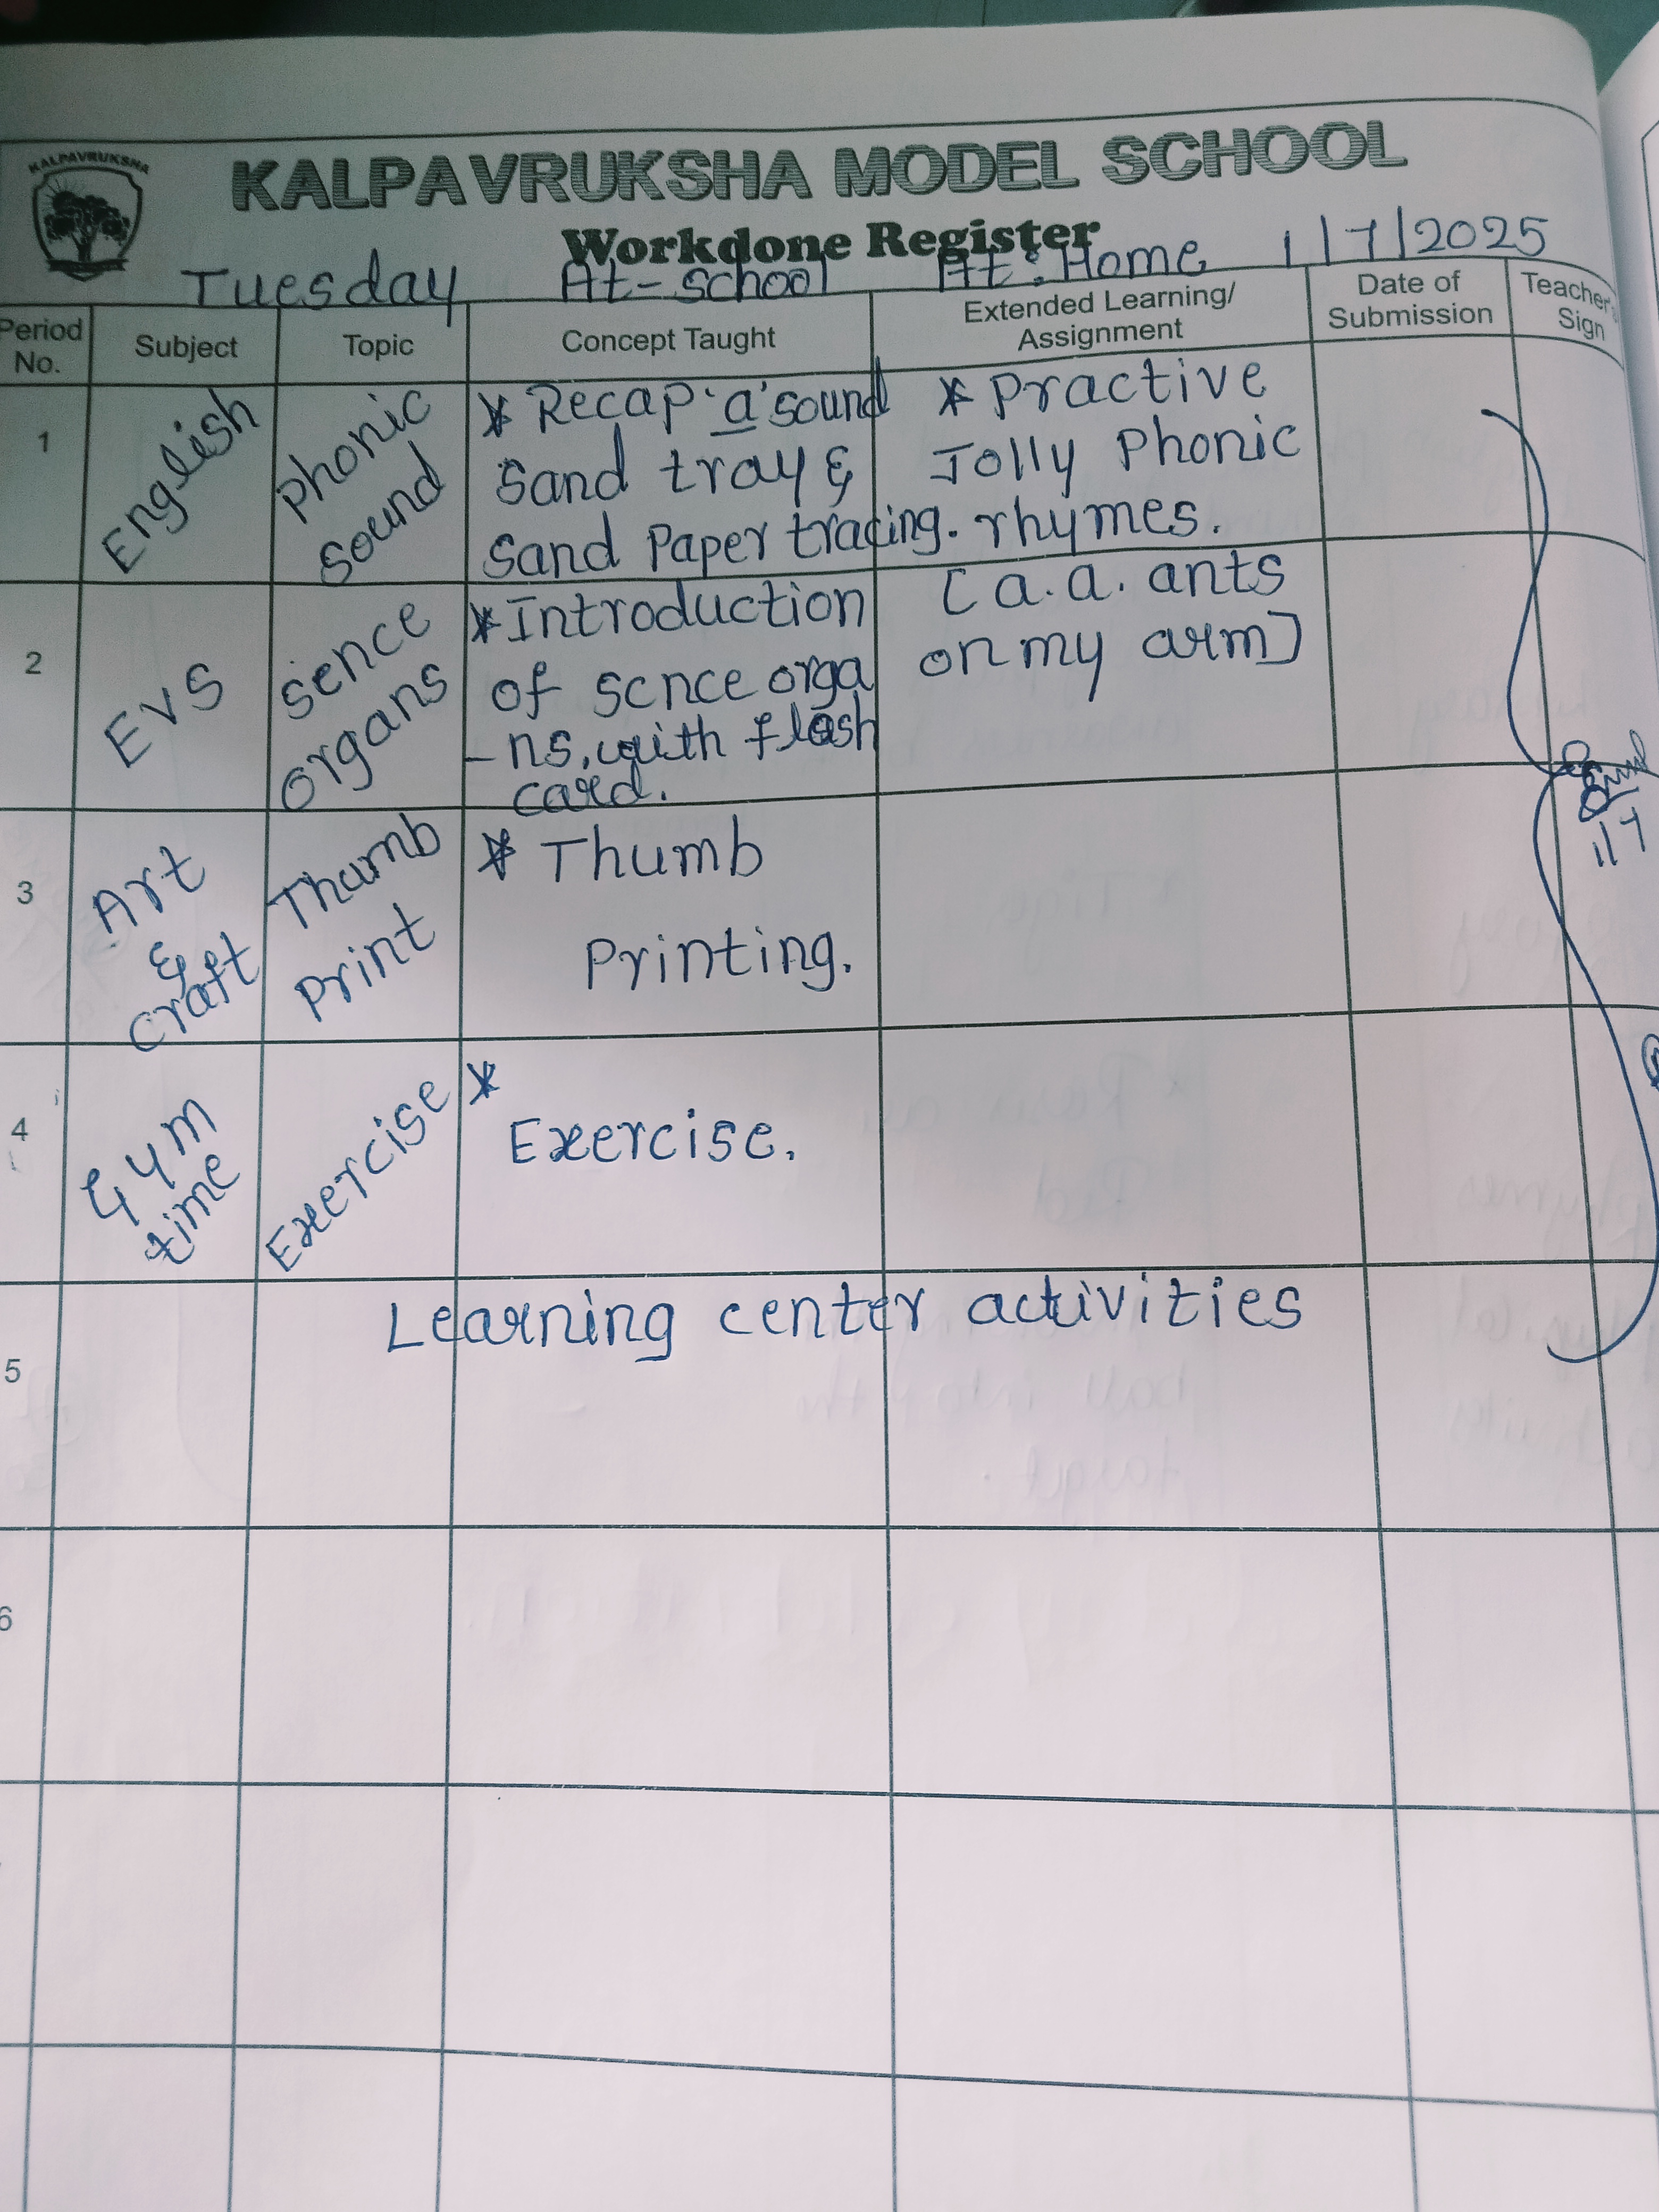 KALPAVRUKSHA
KALPAVRUKSHA MODEL SCHOOL
Workdone Register
Tuesday At-school At:Home 1/7/2025
Period No. Subject Topic Concept Taught Extended Learning/ Assignment Date of Submission Teacher's Sign
1
English
phonic
sound
* Recap 'a' sound
Sand tray &
Sand Paper tracing.
* Practive
Jolly Phonic
rhymes.
[a.a. ants
on my arm]
2
EVS
sence
organs
* Introduction
of scnce orga
-ns, with flash
card.
3
Art
&
craft
Thumb
Print
* Thumb
Printing.
4
Gym
time
Exercise
*
Exercise.
5
Learning center activities
6
1/7